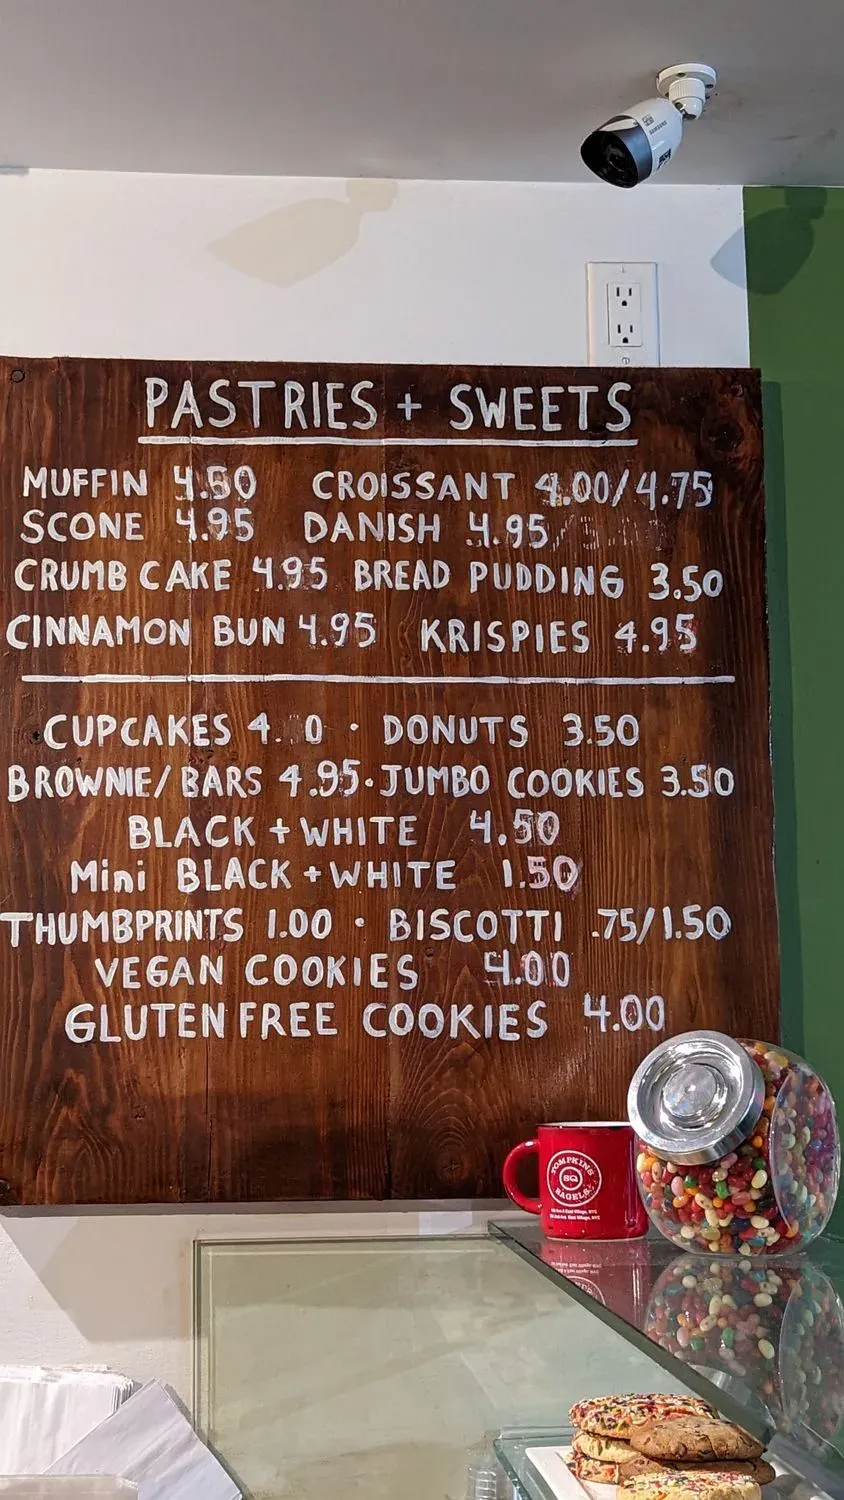 SAMSUNG
PASTRIES + SWEETS
MUFFIN 4.50 CROISSANT 4.00/4.75
SCONE 4.95 DANISH 4.95
CRUMB CAKE 4.95 BREAD PUDDING 3.50
CINNAMON BUN 4.95 KRISPIES 4.95
CUPCAKES 4. 0 · DONUTS 3.50
BROWNIE/BARS 4.95 · JUMBO COOKIES 3.50
BLACK + WHITE 4.50
Mini BLACK + WHITE 1.50
THUMBPRINTS 1.00 · BISCOTTI .75/1.50
VEGAN COOKIES 4.00
GLUTEN FREE COOKIES 4.00
TOMPKINS
SQ
BAGELS